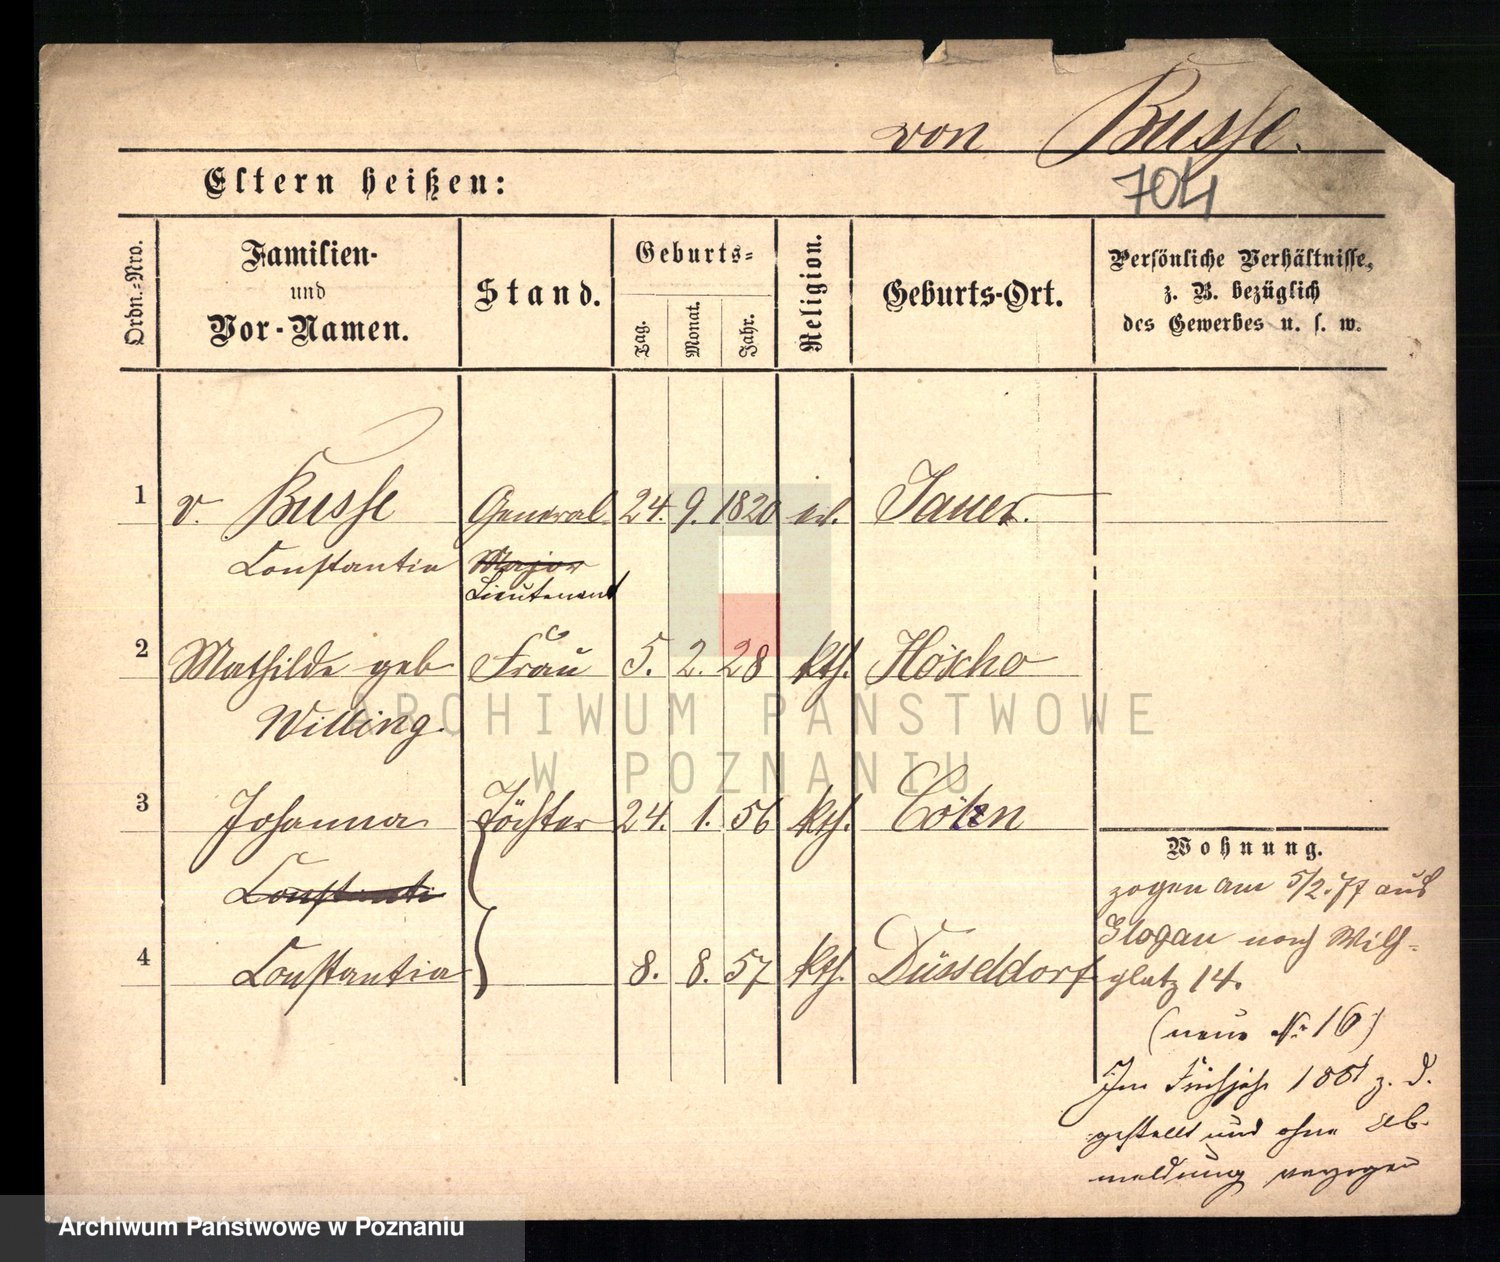 von Busse.
704
Eltern heißen:
Ordn.-Nro.
Familien-
und
Vor-Namen.
Stand.
Geburts-
Tag.
Monat.
Jahr.
Religion.
Geburts-Ort.
Persönliche Verhältnisse,
z. B. bezüglich
des Gewerbes u. s. w.
1 v. Busse General 24. 9. 1820 ev. Jauer.
Constantin Major
Lieutenant
2 Mathilde geb Frau 5. 2. 28 kth.
Willing.
3 Johanna Töchter 24. 1. 56 kth. Cöln
Constanti
4 Constantia 8. 8. 57 kth. Düsseldorf
Wohnung.
zogen am 5/2.77 aus
Glogau nach Wilh-
platz 14.
(neue No 16)
Im Frühjahr 1881 z. D.
gestellt und ohne Ab-
meldung verzogen
ARCHIWUM PAŃSTWOWE
W POZNANIU
Archiwum Państwowe w Poznaniu